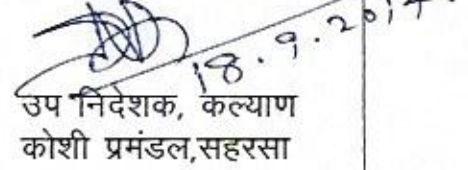 18.9.2017
उप निदेशक, कल्याण
कोशी प्रमंडल,सहरसा